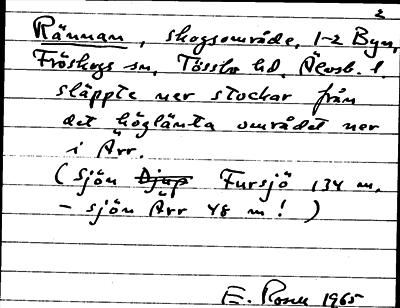 2
Rännan, skogsområde, 1-2 Byn,
Fröskogs sn, Tössbo hd, Älvsb. l.
släppte ner stockar från
det höglänta området ner
i Ärr.
(sjön Djup Fursjö 134 m,
– sjön Ärr 48 m! )
E. Rosell 1965